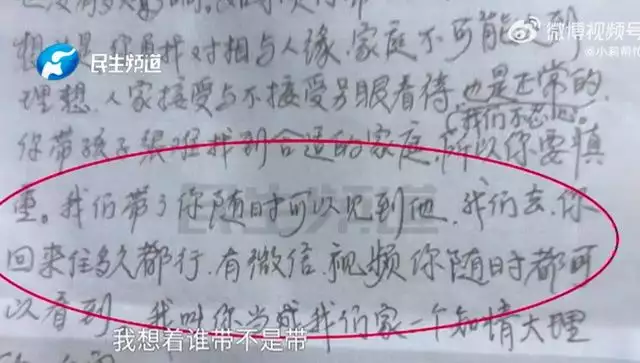 微博视频号
@小莉帮忙
民生频道
对相与人缘.家庭不可能达到
理想.人家接受与不接受另眼看待.也是正常的.
(我们不忍心)
你带孩子很难找到合适的家庭.所以你要慎
重。我们带了你随时可以见到他.我们去.你
回来住多久都行.有微信.视频你随时都可
以看到.我叫你当成我们家一个知情大理
民生频道
我想着谁带不是带